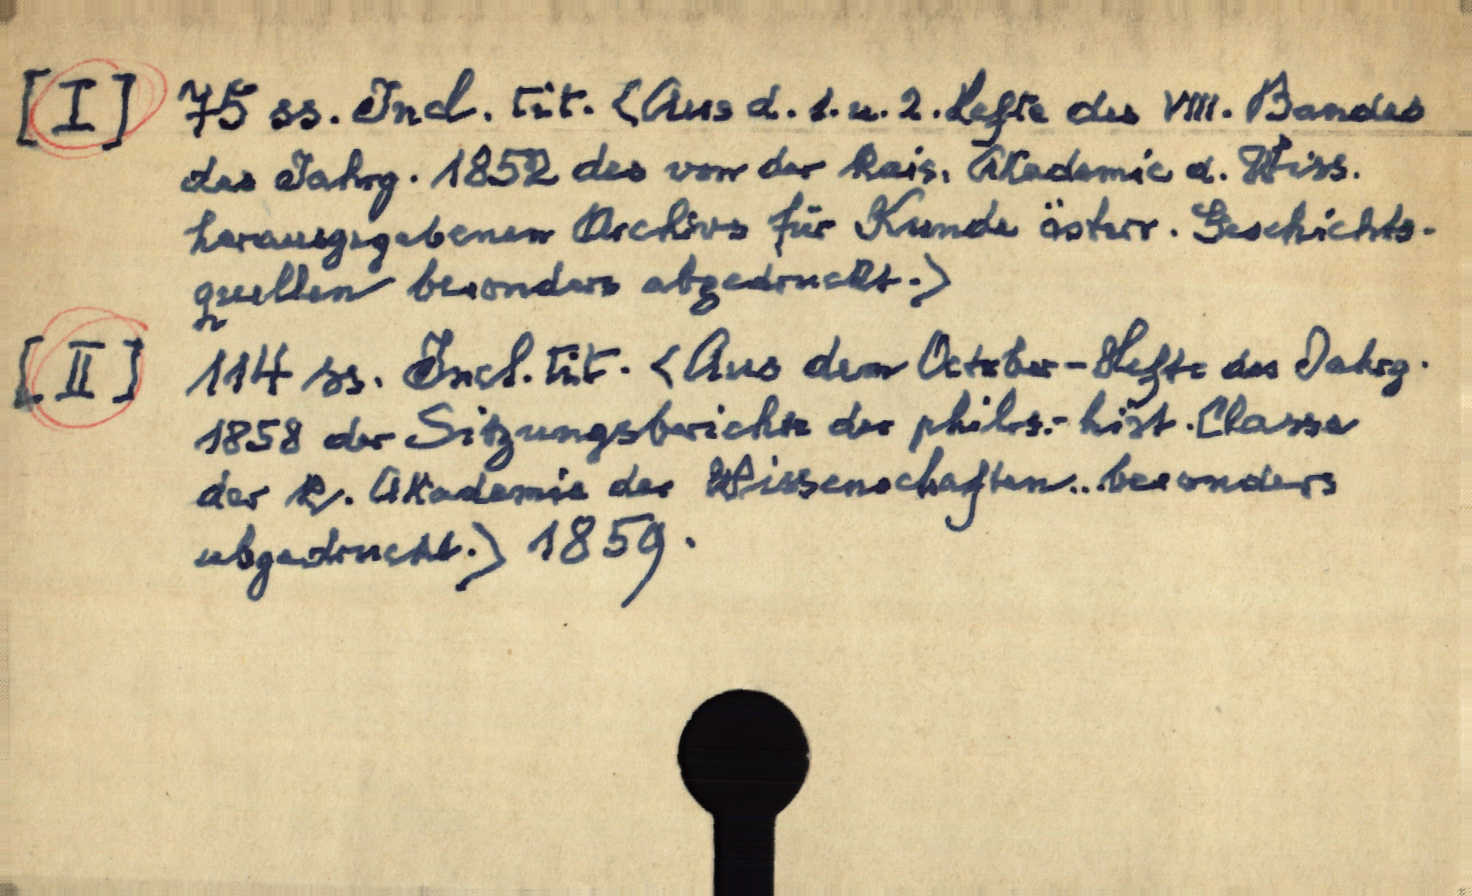 [I] 75 ss. Incl. tit. <Aus d. 1. u. 2. Hefte des VIII. Bandes
des Jahrg. 1852 des von der Kais. Akademie d. Wiss.
herausgegebenen Archivs für Kunde österr. Geschichts-
quellen besonders abgedruckt.>
[II] 114 ss. Incl. tit. <Aus dem October-Hefte des Jahrg.
1858 der Sitzungsberichte der philos.-hist. Classe
der k. Akademie der Wissenschaften.. besonders
abgedruckt.> 1859.